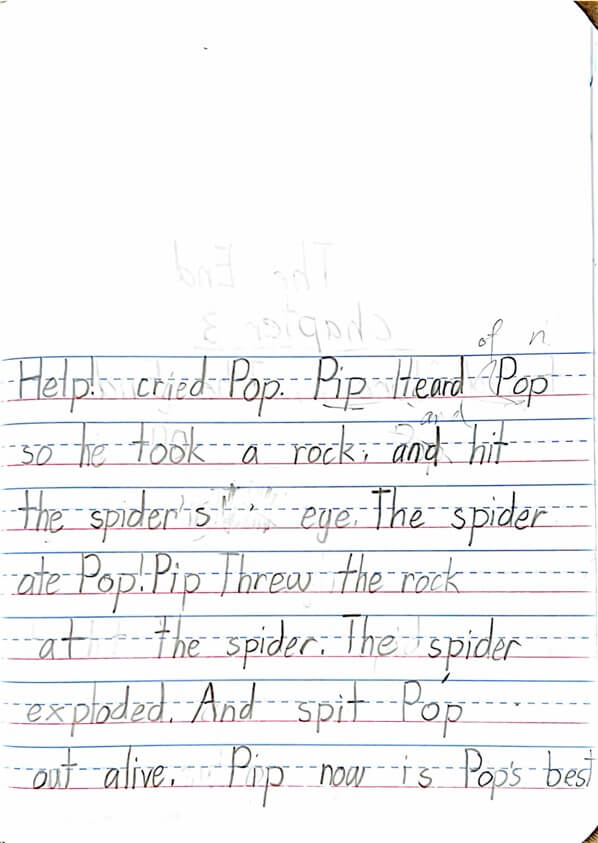 of n
Help! cried Pop. Pip Heard Pop
and
so he took a rock, and hit
the spider's eye. The spider
ate Pop! Pip Threw the rock
at the spider. The spider
exploded. And spit Pop
out alive. Pip now is Pop's best